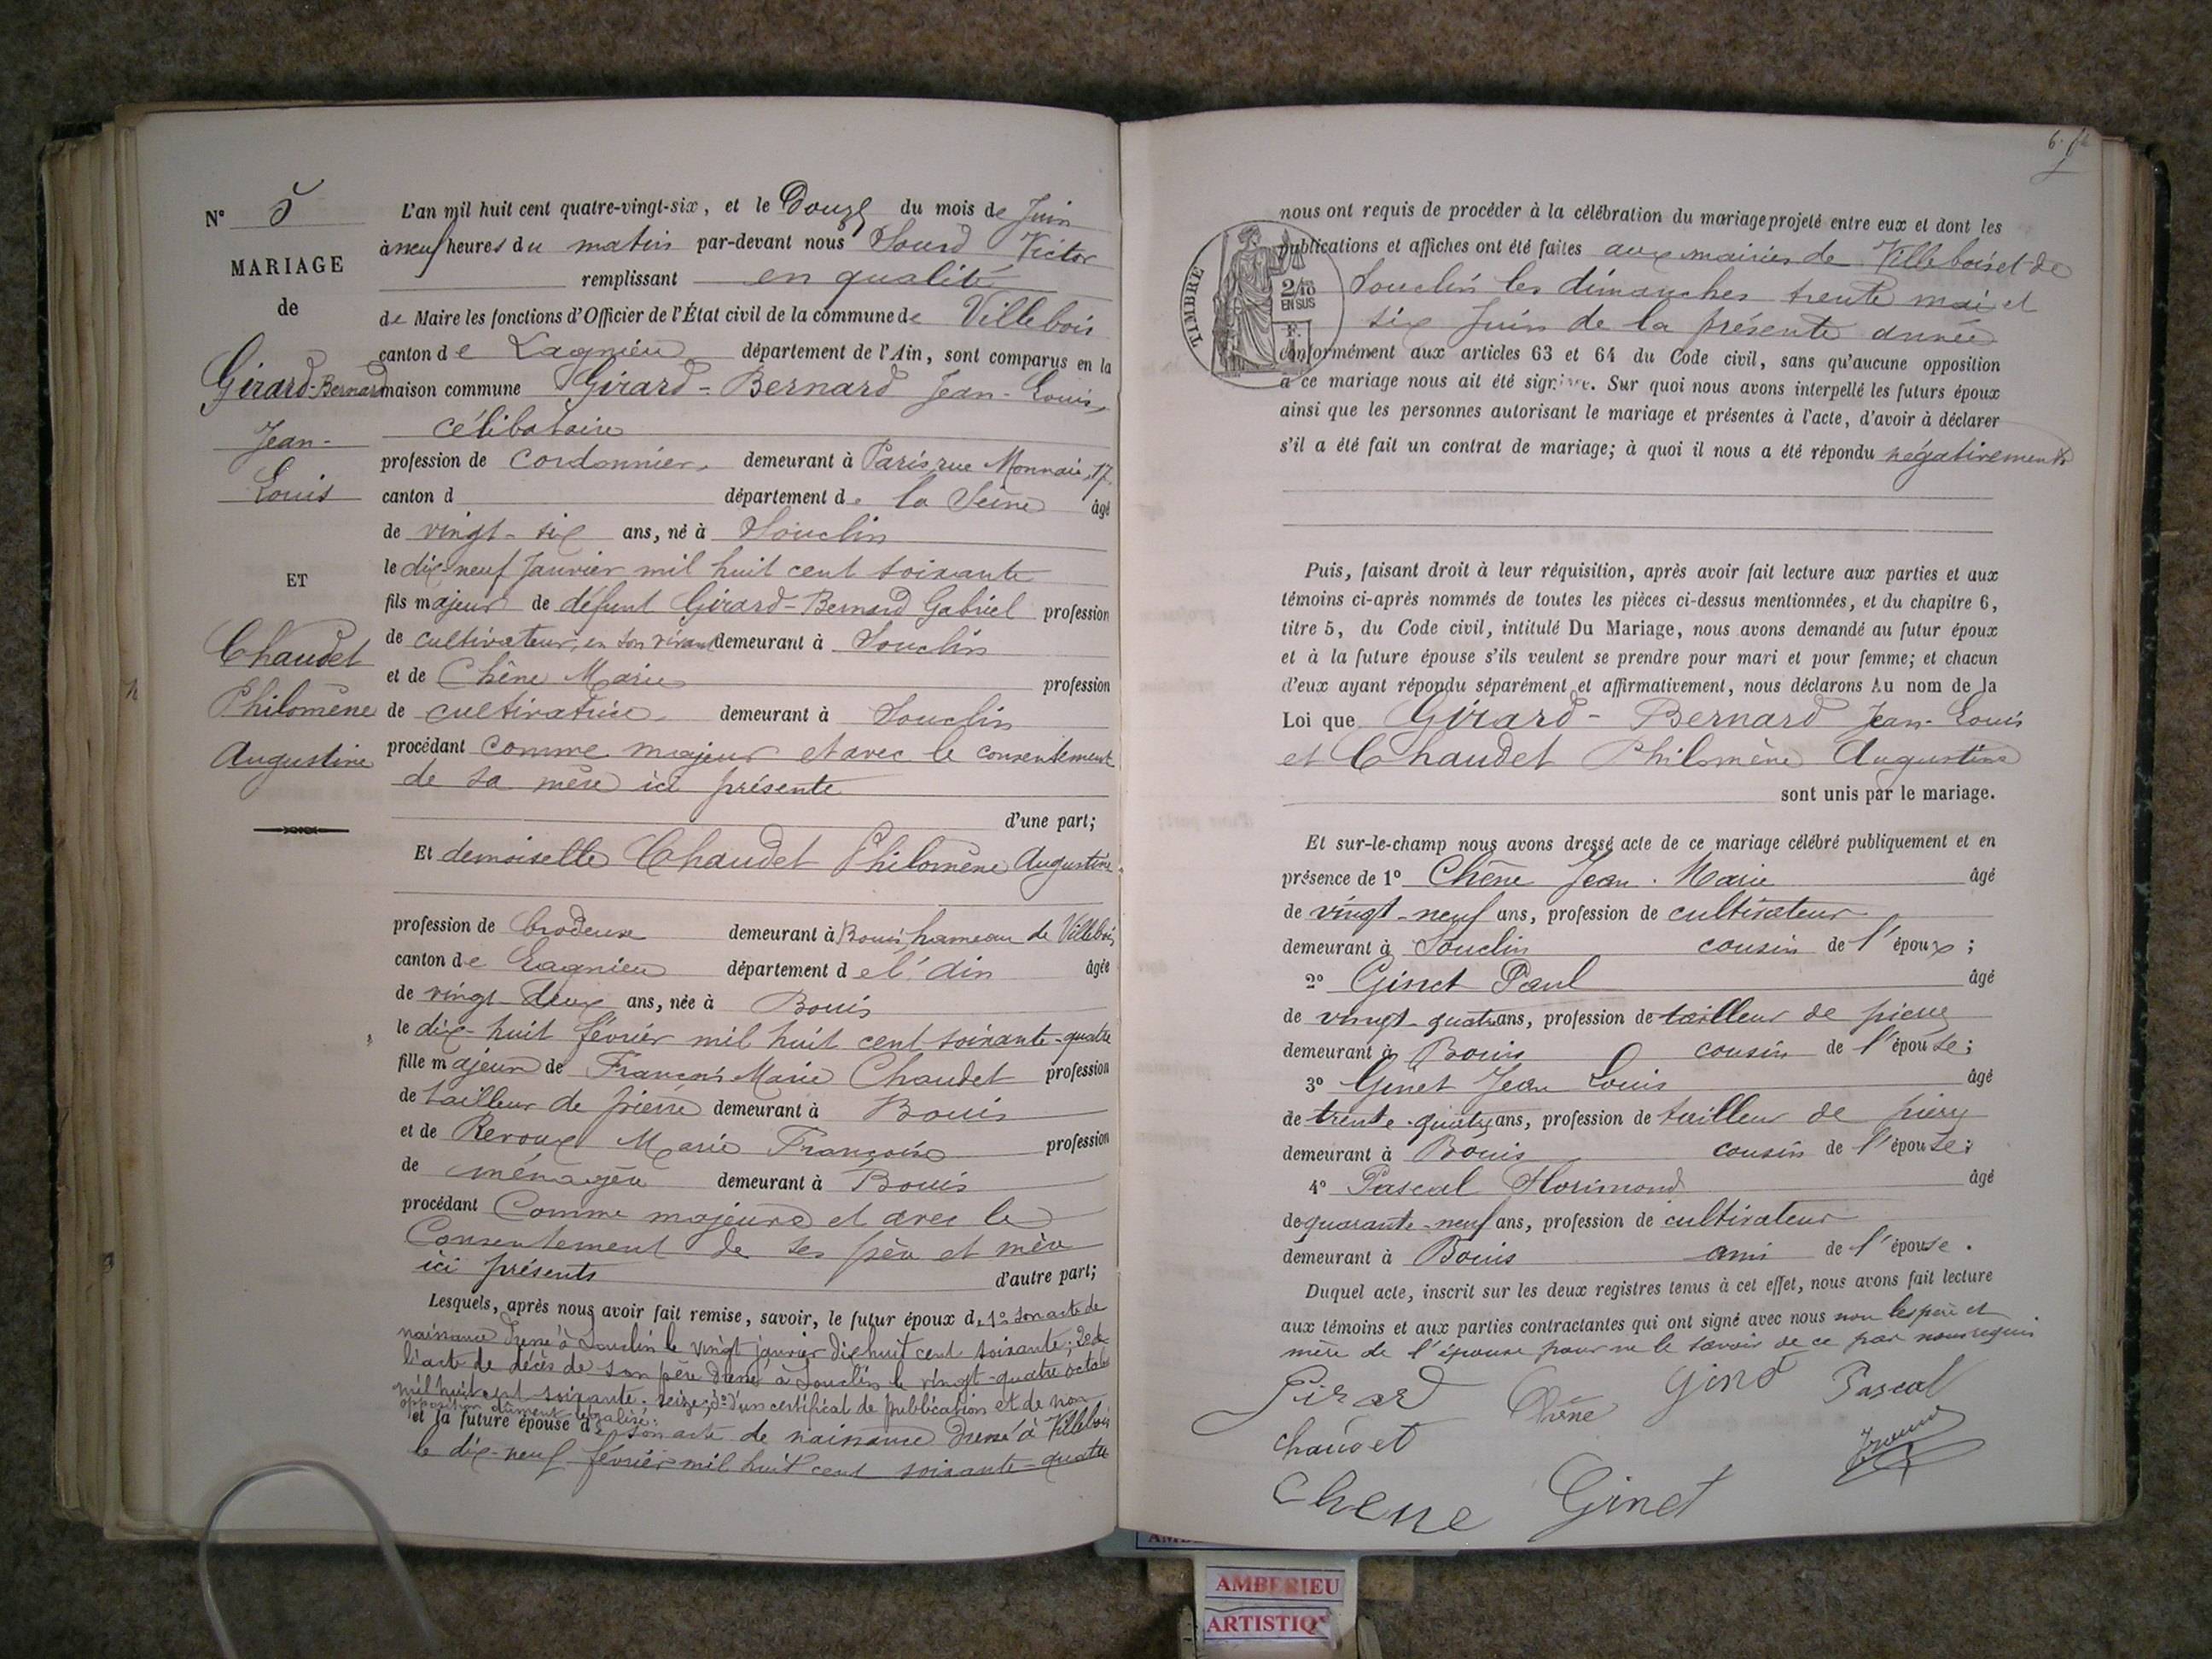 N° 5
MARIAGE
de
Girard-Bernard
Jean-
Louis
ET
Chaudet
Philomène
Augustine
L'an mil huit cent quatre-vingt-six, et le Douze du mois de Juin
à neuf heures du matin par-devant nous Sourd Victor
remplissant en qualité
de Maire les fonctions d'Officier de l'État civil de la commune de Villebois
canton de Lagnieu département de l'Ain, sont comparus en la
maison commune Girard-Bernard Jean-Louis,
célibataire
profession de cordonnier, demeurant à Paris, rue Monnaie, 17
canton d département de la Seine âgé
de vingt-six ans, né à Souclin
le dix-neuf Janvier mil huit cent soixante
fils majeur de défunt Girard-Bernard Gabriel profession
de cultivateur, en son vivant demeurant à Souclin
et de Chêne Marie profession
de cultivatrice demeurant à Souclin
procédant comme majeur et avec le consentement
de sa mère ici présente
d'une part;
Et demoiselle Chaudet Philomène Augustine
profession de brodeuse demeurant à Bouis, hameau de Villebois
canton de Lagnieu département de l'Ain âgée
de vingt-deux ans, née à Bouis
le dix-huit février mil huit cent soixante-quatre
fille majeure de François Marie Chaudet profession
de tailleur de pierre demeurant à Bouis
et de Reroux Marie Françoise profession
de ménagère demeurant à Bouis
procédant Comme majeure et avec le
Consentement de ses père et mère
ici présents d'autre part;
Lesquels, après nous avoir fait remise, savoir, le futur époux de 1° son acte de
naissance dressé à Souclin le vingt janvier dix huit cent soixante; 2° de
l'acte de décès de son père dressé à Souclin le vingt-quatre octobre
mil huit cent soixante-seize; 3° d'un certificat de publication et de non
opposition dûment légalisé;
et la future épouse de son acte de naissance dressé à Villebois
le dix-neuf février mil huit cent soixante-quatre
6.
TIMBRE
2/10
EN SUS
nous ont requis de procéder à la célébration du mariage projeté entre eux et dont les
publications et affiches ont été faites aux mairies de Villebois et de
Souclin les dimanches trente mai et
six Juin de la présente année
conformément aux articles 63 et 64 du Code civil, sans qu'aucune opposition
à ce mariage nous ait été signifiée. Sur quoi nous avons interpellé les futurs époux
ainsi que les personnes autorisant le mariage et présentes à l'acte, d'avoir à déclarer
s'il a été fait un contrat de mariage; à quoi il nous a été répondu négativement
Puis, faisant droit à leur réquisition, après avoir fait lecture aux parties et aux
témoins ci-après nommés de toutes les pièces ci-dessus mentionnées, et du chapitre 6,
titre 5, du Code civil, intitulé Du Mariage, nous avons demandé au futur époux
et à la future épouse s'ils veulent se prendre pour mari et pour femme; et chacun
d'eux ayant répondu séparément et affirmativement, nous déclarons Au nom de la
Loi que Girard-Bernard Jean-Louis
et Chaudet Philomène Augustine
sont unis par le mariage.
Et sur-le-champ nous avons dressé acte de ce mariage célébré publiquement et en
présence de 1° Chêne Jean-Marie âgé
de vingt-neuf ans, profession de cultivateur
demeurant à Souclin cousin de l'époux;
2° Ginet Paul âgé
de vingt-quatre ans, profession de tailleur de pierre
demeurant à Bouis cousin de l'épouse;
3° Ginet Jean Louis âgé
de trente-quatre ans, profession de tailleur de pierre
demeurant à Bouis cousin de l'épouse;
4° Pascal Florimond âgé
de quarante-neuf ans, profession de cultivateur
demeurant à Bouis ami de l'épouse.
Duquel acte, inscrit sur les deux registres tenus à cet effet, nous avons fait lecture
aux témoins et aux parties contractantes qui ont signé avec nous non les père et
mère de l'épouse pour ne le savoir de ce par nous requis
Girard Chêne Ginet Pascal
Chaudet
Chene Ginet
AMBERIEU
ARTISTIQ